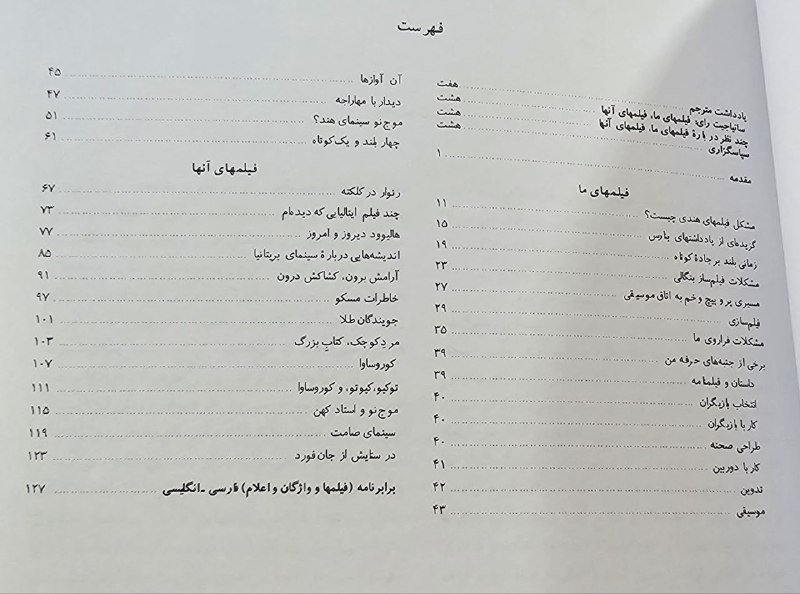 فهرست
یادداشت مترجم ... هفت
ساتیاجیت رای: فیلمهای ما، فیلمهای آنها ... هشت
چند نظر دربارهٔ فیلمهای ما، فیلمهای آنها ... هشت
سپاسگزاری ... هشت
مقدمه ... ۱
فیلمهای ما
مشکل فیلمهای هندی چیست؟ ... ۱۱
گزیده‌ای از یادداشتهای بنارس ... ۱۵
زمانی بلند بر جادهٔ کوتاه ... ۱۹
مشکلات فیلمساز بنگالی ... ۲۳
مسیری پر و پیچ و خم به اتاق موسیقی ... ۲۷
فیلم‌سازی ... ۲۹
مشکلات فراروی ما ... ۳۵
برخی از جنبه‌های حرفه من ... ۳۹
داستان و فیلمنامه ... ۳۹
انتخاب بازیگران ... ۴۰
کار با بازیگران ... ۴۰
طراحی صحنه ... ۴۰
کار با دوربین ... ۴۱
تدوین ... ۴۲
موسیقی ... ۴۳
آن آوازها ... ۴۵
دیدار با مهاراجه ... ۴۷
موج‌نو سینمای هند؟ ... ۵۱
چهار بلند و یک‌کوتاه ... ۶۱
فیلمهای آنها
رنوار در کلکته ... ۶۷
چند فیلم ایتالیایی که دیده‌ام ... ۷۳
هالیوود دیروز و امروز ... ۷۷
اندیشه‌هایی دربارهٔ سینمای بریتانیا ... ۸۵
آرامش برون، کشاکش درون ... ۹۱
خاطرات مسکو ... ۹۷
جویندگان طلا ... ۱۰۱
مردِ کوچک، کتابِ بزرگ ... ۱۰۳
کوروساوا ... ۱۰۷
توکیو، کیوتو، و کوروساوا ... ۱۱۱
موج‌نو و استاد کهن ... ۱۱۵
سینمای صامت ... ۱۱۹
در ستایش از جان فورد ... ۱۲۳
برابرنامه (فیلمها و واژگان و اعلام) فارسی ـ انگلیسی ... ۱۲۷